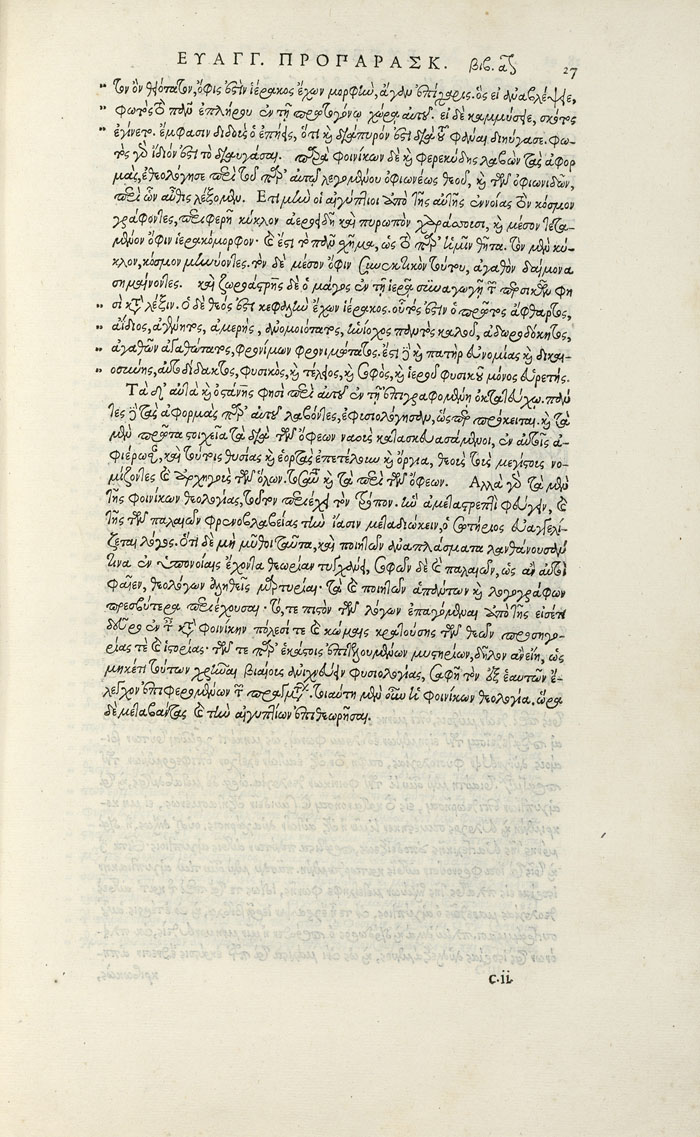 ΕΥΑΓΓ. ΠΡΟΠΑΡΑΣΚ. βιβ. α 27
τον ὂν θειότατον, ὄφις ἐστὶν ἱέρακος ἔχων μορφὴν, ἄγαν ἐπίχαρις. ὃς εἰ ἀναβλέψειε,
φωτὸς τὸ πᾶν ἐπλήρου ἐν τῇ πρωτογόνῳ χώρᾳ αὐτοῦ. εἰ δὲ καμμύσειε, σκότος
ἐγίνετο. ἔμφασιν διδοὺς ὁ ἐπήεις, ὅτι καὶ διάπυρόν ἐστι διὰ τοῦ φάναι διηύγασε. φω-
τὸς γὰρ ἴδιόν ἐστι τὸ διαυγάσαι. παρὰ φοινίκων δὲ καὶ φερεκύδης λαβὼν τὰς ἀφορ
μὰς, ἐθεολόγησε περὶ τοῦ παρ' αὐτῷ λεγομένου ὀφιωνέως θεοῦ, καὶ τῶν ὀφιωνιδῶν,
περὶ ὧν αὖθις λέξομεν. Ἔτι μὴν οἱ αἰγύπτιοι ἀπὸ τῆς αὐτῆς ἐννοίας τὸν κόσμον
γράφοντες, περιφερῆ κύκλον ἀεροειδῆ καὶ πυρωπὸν χαράσσουσι, καὶ μέσον τετα-
μένον ὄφιν ἱερακόμορφον· καὶ ἔστι τὸ πᾶν σχῆμα, ὡς τὸ παρ' ἡμῖν θῆτα. τὸν μὲν κύ-
κλον, κόσμον μηνύοντες. τὸν δὲ μέσον ὄφιν συνεκτικὸν τούτου, ἀγαθὸν δαίμονα
σημαίνοντες. καὶ ζωροάστρης δὲ ὁ μάγος ἐν τῇ ἱερᾷ συναγωγῇ τῶν περσικῶν φη
σὶ κατὰ λέξιν. Ὁ δὲ θεός ἐστι κεφαλὴν ἔχων ἱέρακος. οὗτός ἐστιν ὁ πρῶτος ἄφθαρτος,
ἀΐδιος, ἀγένητος, ἀμερὴς, ἀνομοιότατος, ἡνίοχος παντὸς καλοῦ, ἀδωροδόκητος,
ἀγαθῶν ἀγαθώτατος, φρονίμων φρονιμώτατος. ἔστι δὲ καὶ πατὴρ εὐνομίας καὶ δικαι-
οσύνης, αὐτοδίδακτος, φυσικὸς, καὶ τέλειος, καὶ σοφὸς, καὶ ἱεροῦ φυσικοῦ μόνος εὑρετής.
Τὰ δ' αὐτὰ καὶ ὀστάνης φησὶ περὶ αὐτοῦ ἐν τῇ ἐπιγραφομένῃ ὀκτατεύχῳ. πάν
τες δὲ τὰς ἀφορμὰς παρ' αὐτοῦ λαβόντες, ἐφυσιολόγησαν, ὥσπερ πρόκειται. καὶ τὰ
μὲν πρῶτα στοιχεῖα τὰ διὰ τῶν ὄφεων ναοὺς κατασκευασάμενοι, ἐν αὐτοῖς ἀ-
φιέρωσαν, καὶ τούτοις θυσίας καὶ ἑορτὰς ἐπετέλουν καὶ ὄργια, θεοὺς τοὺς μεγίστους νο-
μίζοντες καὶ ἀρχηγοὺς τῶν ὅλων. τοσαῦτα καὶ τὰ περὶ τῶν ὄφεων. Ἀλλὰ γὰρ τὰ μὲν
τῆς φοινίκων θεολογίας, τοῦτον περιέχει τὸν τρόπον. ἣν ἀμεταστρεπτὶ φεύγειν, καὶ
τῆς τῶν παλαιῶν φρενοβλαβείας τὴν ἴασιν μεταδιώκειν, ὁ σωτήριος εὐαγγελί-
ζεται λόγος. Ὅτι δὲ μὴ μῦθοι ταῦτα, καὶ ποιητῶν ἀναπλάσματα λανθάνουσάν
τινα ἐν ὑπονοίαις ἔχοντα θεωρίαν τυγχάνει, σοφῶν δὲ καὶ παλαιῶν, ὡς ἂν αὐτοὶ
φαῖεν, θεολόγων ἀληθεῖς μαρτυρίαι· τὰ καὶ ποιητῶν ἁπάντων καὶ λογογράφων
πρεσβύτερα περιέχουσαι· τό, τε πιστὸν τῶν λόγων ἐπαγόμεναι ἀπὸ τῆς εἰσέτι
δεῦρο ἐν ταῖς κατὰ φοινίκην πόλεσί τε καὶ κώμαις κρατούσης τῶν θεῶν προσηγο-
ρίας τὲ καὶ ἱστορίας· τῶν τε παρ' ἑκάστοις ἐπιτελουμένων μυστηρίων, δῆλον ἂν εἴη, ὡς
μηκέτι τούτων χρῆναι βιαίους ἀνιχνεύειν φυσιολογίας, σαφῆ τὸν ἐξ ἑαυτῶν ἔ-
λεγχον ἐπιφερομένων τῶν πραγμάτων. τοιαύτη μὲν οὖν ἡ φοινίκων θεολογία. ὥρα
δὲ μεταβάντας καὶ τὴν αἰγυπτίων ἐπιθεωρῆσαι.
c.ii.